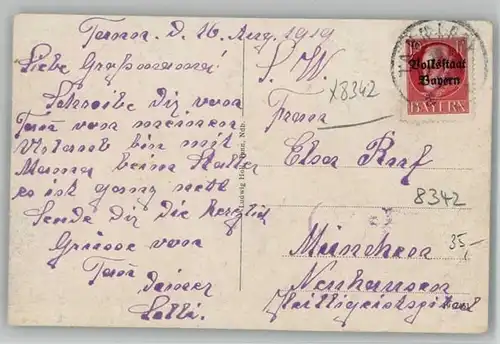 Tann. d. 16. Aug. 1919
Liebe Großmama!
Schreibe Dir von
Tann von meinem
Urlaub bin mit
Mama beim Keller
es ist ganz nett
Sende Dir die herzlich
Grüsse von
Tann
Deiner
Lolli.
S. W.
Frau
Elsa
München
Neuhausen
Heiliggeistspital
X8342
8342
35,-
10
Volksstaat
Bayern
BAYERN
Ludwig
Ndb.